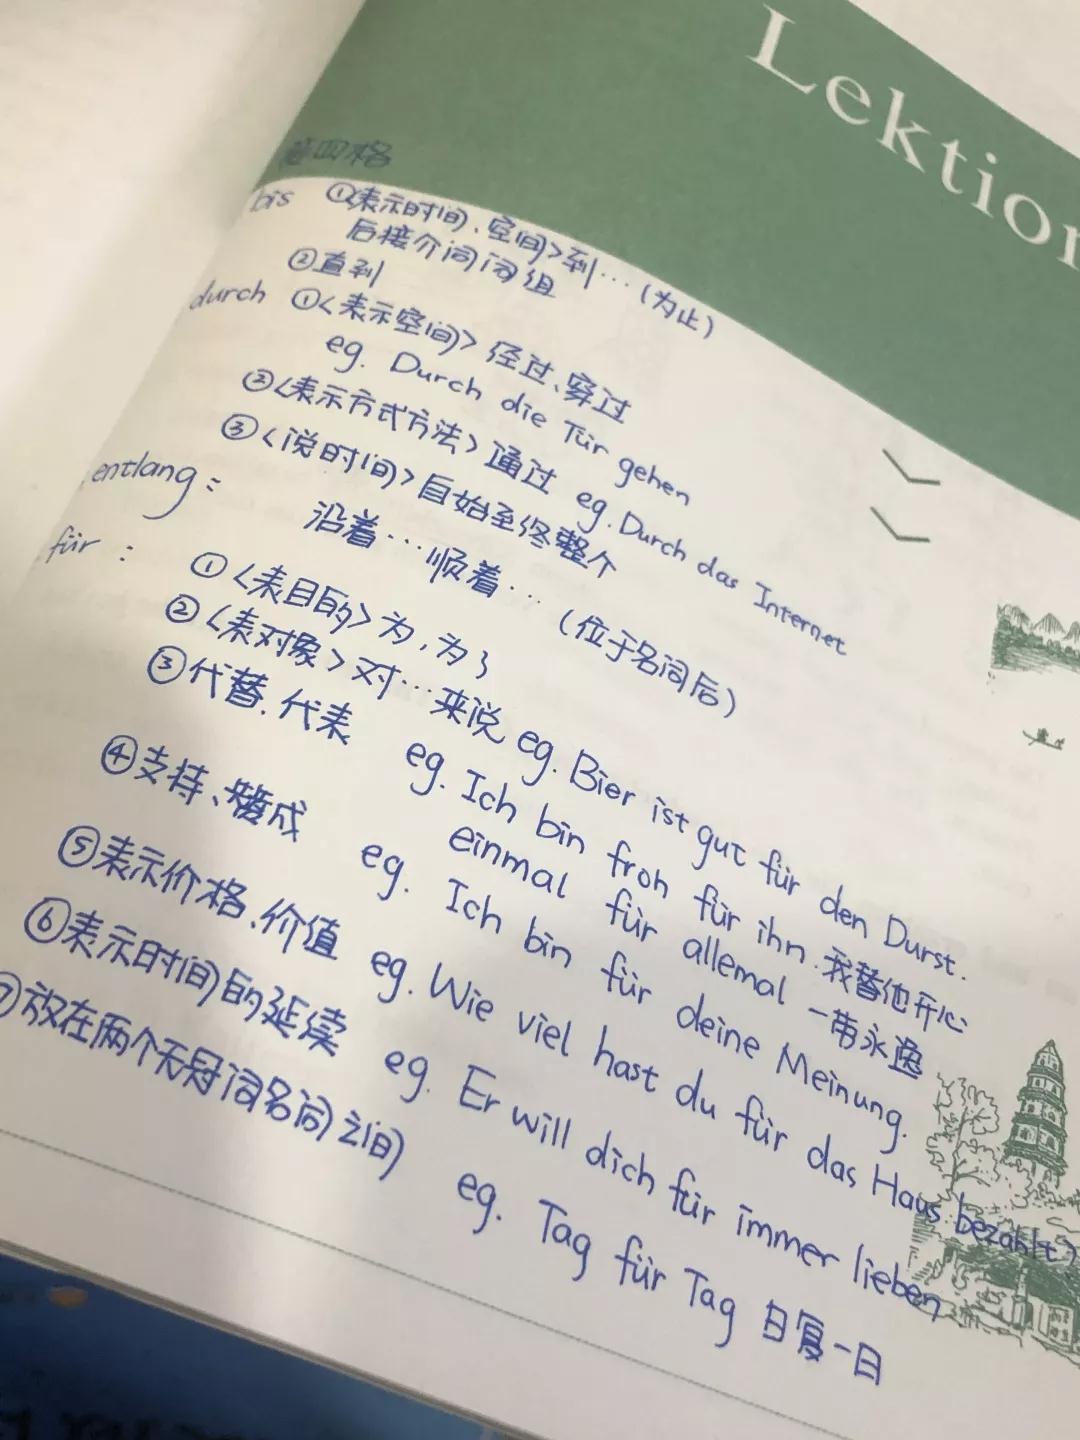 Lektion
第四格
bis ①<表示时间、空间>到…(为止)
后接介词词组
②直到
durch ①<表示空间>经过、穿过
eg. Durch die Tür gehen
②<表示方式方法>通过 eg. Durch das Internet
③<说时间>自始至终整个
entlang: 沿着…顺着…(位于名词后)
für: ①<表目的>为,为了
②<表对象>对…来说 eg. Bier ist gut für den Durst.
③代替、代表 eg. Ich bin froh für ihn.我替他开心
einmal für allemal 一劳永逸
④支持、赞成 eg. Ich bin für deine Meinung.
⑤表示价格、价值 eg. Wie viel hast du für das Haus bezahlt?
⑥表示时间的延续 eg. Er will dich für immer lieben
⑦放在两个无冠词名词之间 eg. Tag für Tag 日复一日